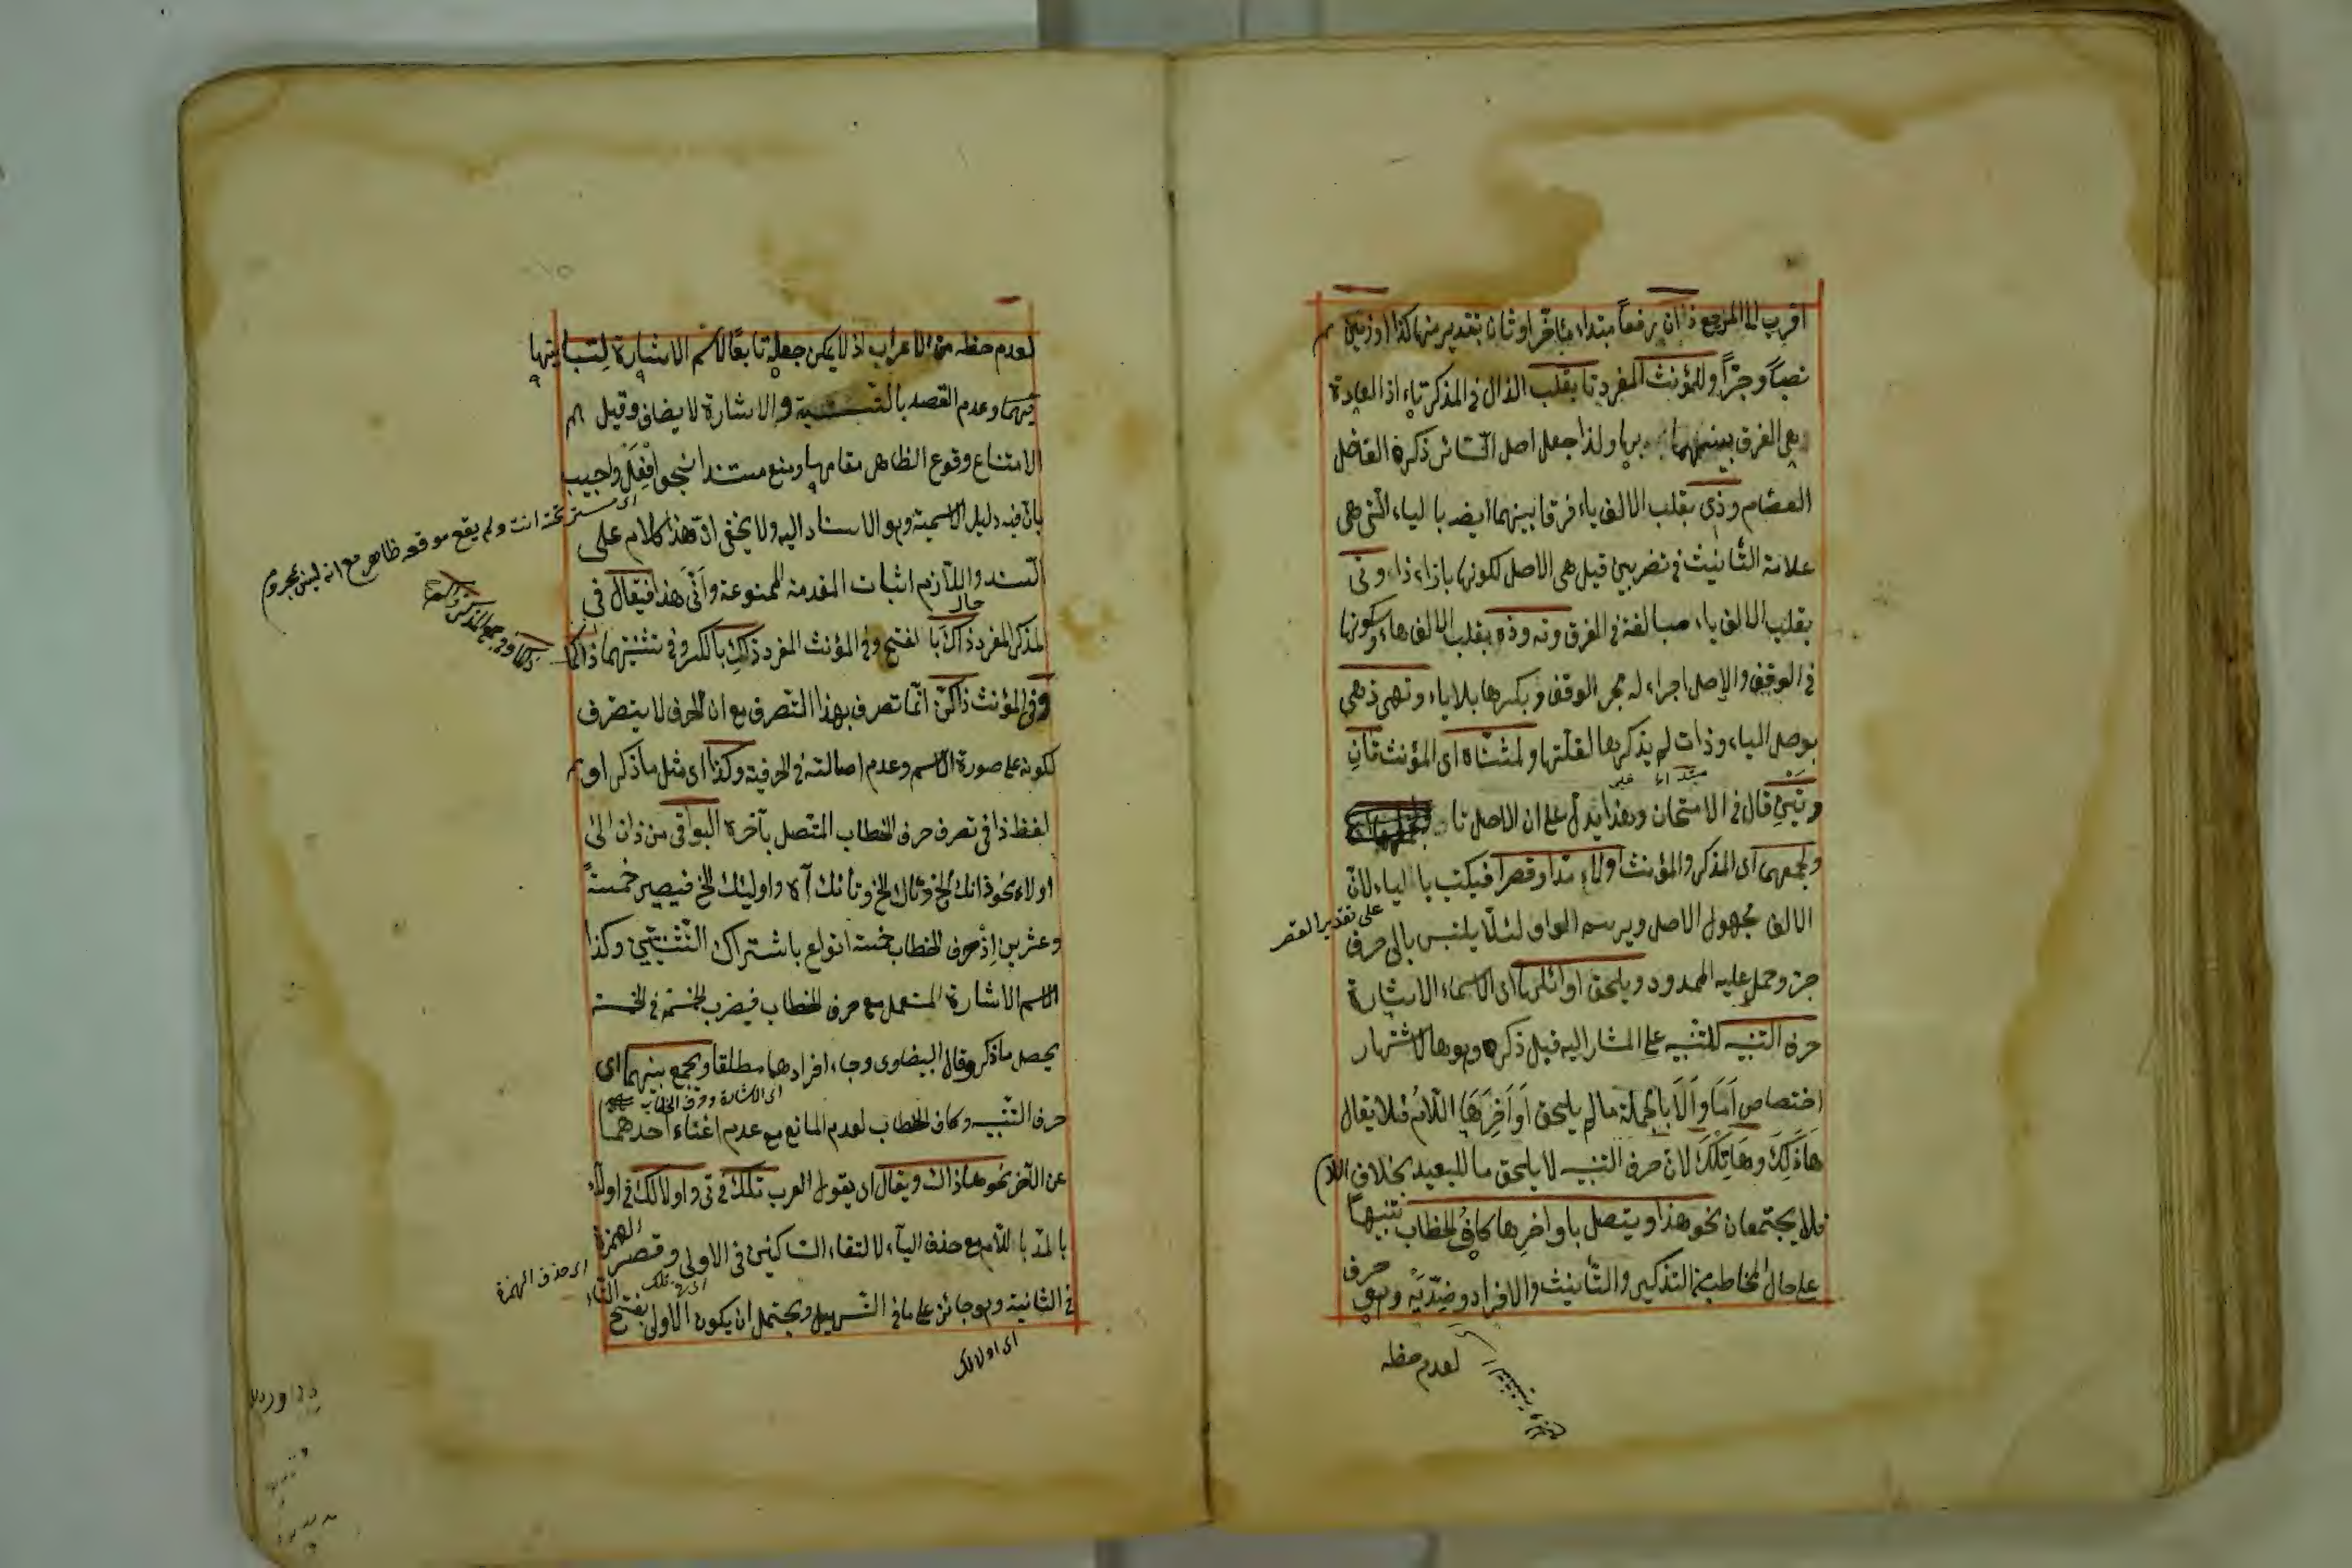 اقرب الى المرجع ذان رفعاً مبتداء مؤخر او ثان بتقدير منها كذا او زيد
نصباً وجراً وللمؤنث المفرد تا بقلب الذال في المذكر تاء اذ العادة
على الفرق بينهما بها ولذا جعل اصل التاء ذكره الفاضل
العصام وذي بقلب الالف ياء فرقا بينهما ايضه بالياء التي هي
علامة التأنيث في تضربين قيل هي الاصل لكونها بازاء ذا وتي
بقلب الالف ياء مبالغة في الفرق وته وذه بقلب الالف هاء وسكونها
في الوقف والاصل اجراء له مجر الوقف وبكسرها بلا ياء وتهي ذهي
بوصل الياء وذات لم يذكرها لقلتها ولمثناه اى المؤنث تان
وتين قال في الامتحان وهذا يدل على ان الاصل تا
مبتداء خبر
ولجمعهما اى المذكر والمؤنث اولاء مدا وقصرا فيكتب بالياء لان
الالف مجهول الاصل ويرسم الواو لئلا يلتبس بالى حرف
على تقدير القصر
جر وحمل عليه الممدود ويلحق اوائلها اى الاسماء الاشارة
حرف التنبيه للتنبيه على المشار اليه قبل ذكره وهو ها لاشتهار
اختصاص اما والا بالجملة ما لم يلحق اواخرها اللام فلا يقال
هاذلك وهاتلك لان حرف التنبيه لا يلحق ما للبعيد بخلاف اللام
فلا يجتمعان نحو هذا ويتصل باواخرها كاف الخطاب تنبيهاً
على حال المخاطب من التذكير والتأنيث والافراد وضديه وهو حرف
لعدم حظه
لعدم حظه من الاعراب اذ لا يمكن جعله تابعا لاسم الاشارة لتباينهما
فيهما وعدم القصد بالنسبة والاشارة لا يضاف وقيل
لامتناع وقوع الظاهر مقامها ومنع مستندا بنحو افعل واجيب
بان فيه دليل الاسمية وهو الاسناد اليه ولا يخفى ان هذا كلام على
اى مستتر تحته انت ولم يقع موقعه ظاهر مع انه ليس بحروم
السند واللازم اثبات المقدمة الممنوعة وانى هذا فيقال في
حال
المذكر المفرد ذاك بالفتح وفي المؤنث المفرد ذاك بالكسر وفي تثنيتهما ذاكما
وفي المؤنث ذاكن انما تصرف بهذا التصرف مع ان الحرف لا يتصرف
لكونه على صورة الاسم وعدم اصالته في الحرفية وكذا اى مثل ما ذكر او
لفظ ذا في تصرف حرف الخطاب المتصل بآخره البواقي من ذان الى
اولاء نحو ذانك الخ وتاك الخ وتانك آه واولئك الخ فيصير خمسةً
وعشرين اذ حرف الخطاب خمسة انواع باشتراك التثنيتين وكذا
الاسم الاشارة المستعمل مع حرف الخطاب فيضرب الخمسة في الخمسة
يحصل ما ذكر وقال البيضاوى وجاء افرادها مطلقا ويجمع بينهما اى
اى الاشارة وحرف الخطاب
حرف التنبيه وكاف الخطاب لعدم المانع مع عدم اغناء احدهما
عن الآخر نحو هاذاك ويقال اى يقول العرب تلك في تى واولالك في اولاء
بالمد باللام مع حذف الياء لالتقاء الساكنين في الاولى وقصر الهمزة
اى حذف الهمزة
اى في تلك
في الثانية وهو جائز على ما في التسهيل ويحتمل ان يكون الاولى بفتح التاء
اى اولالك